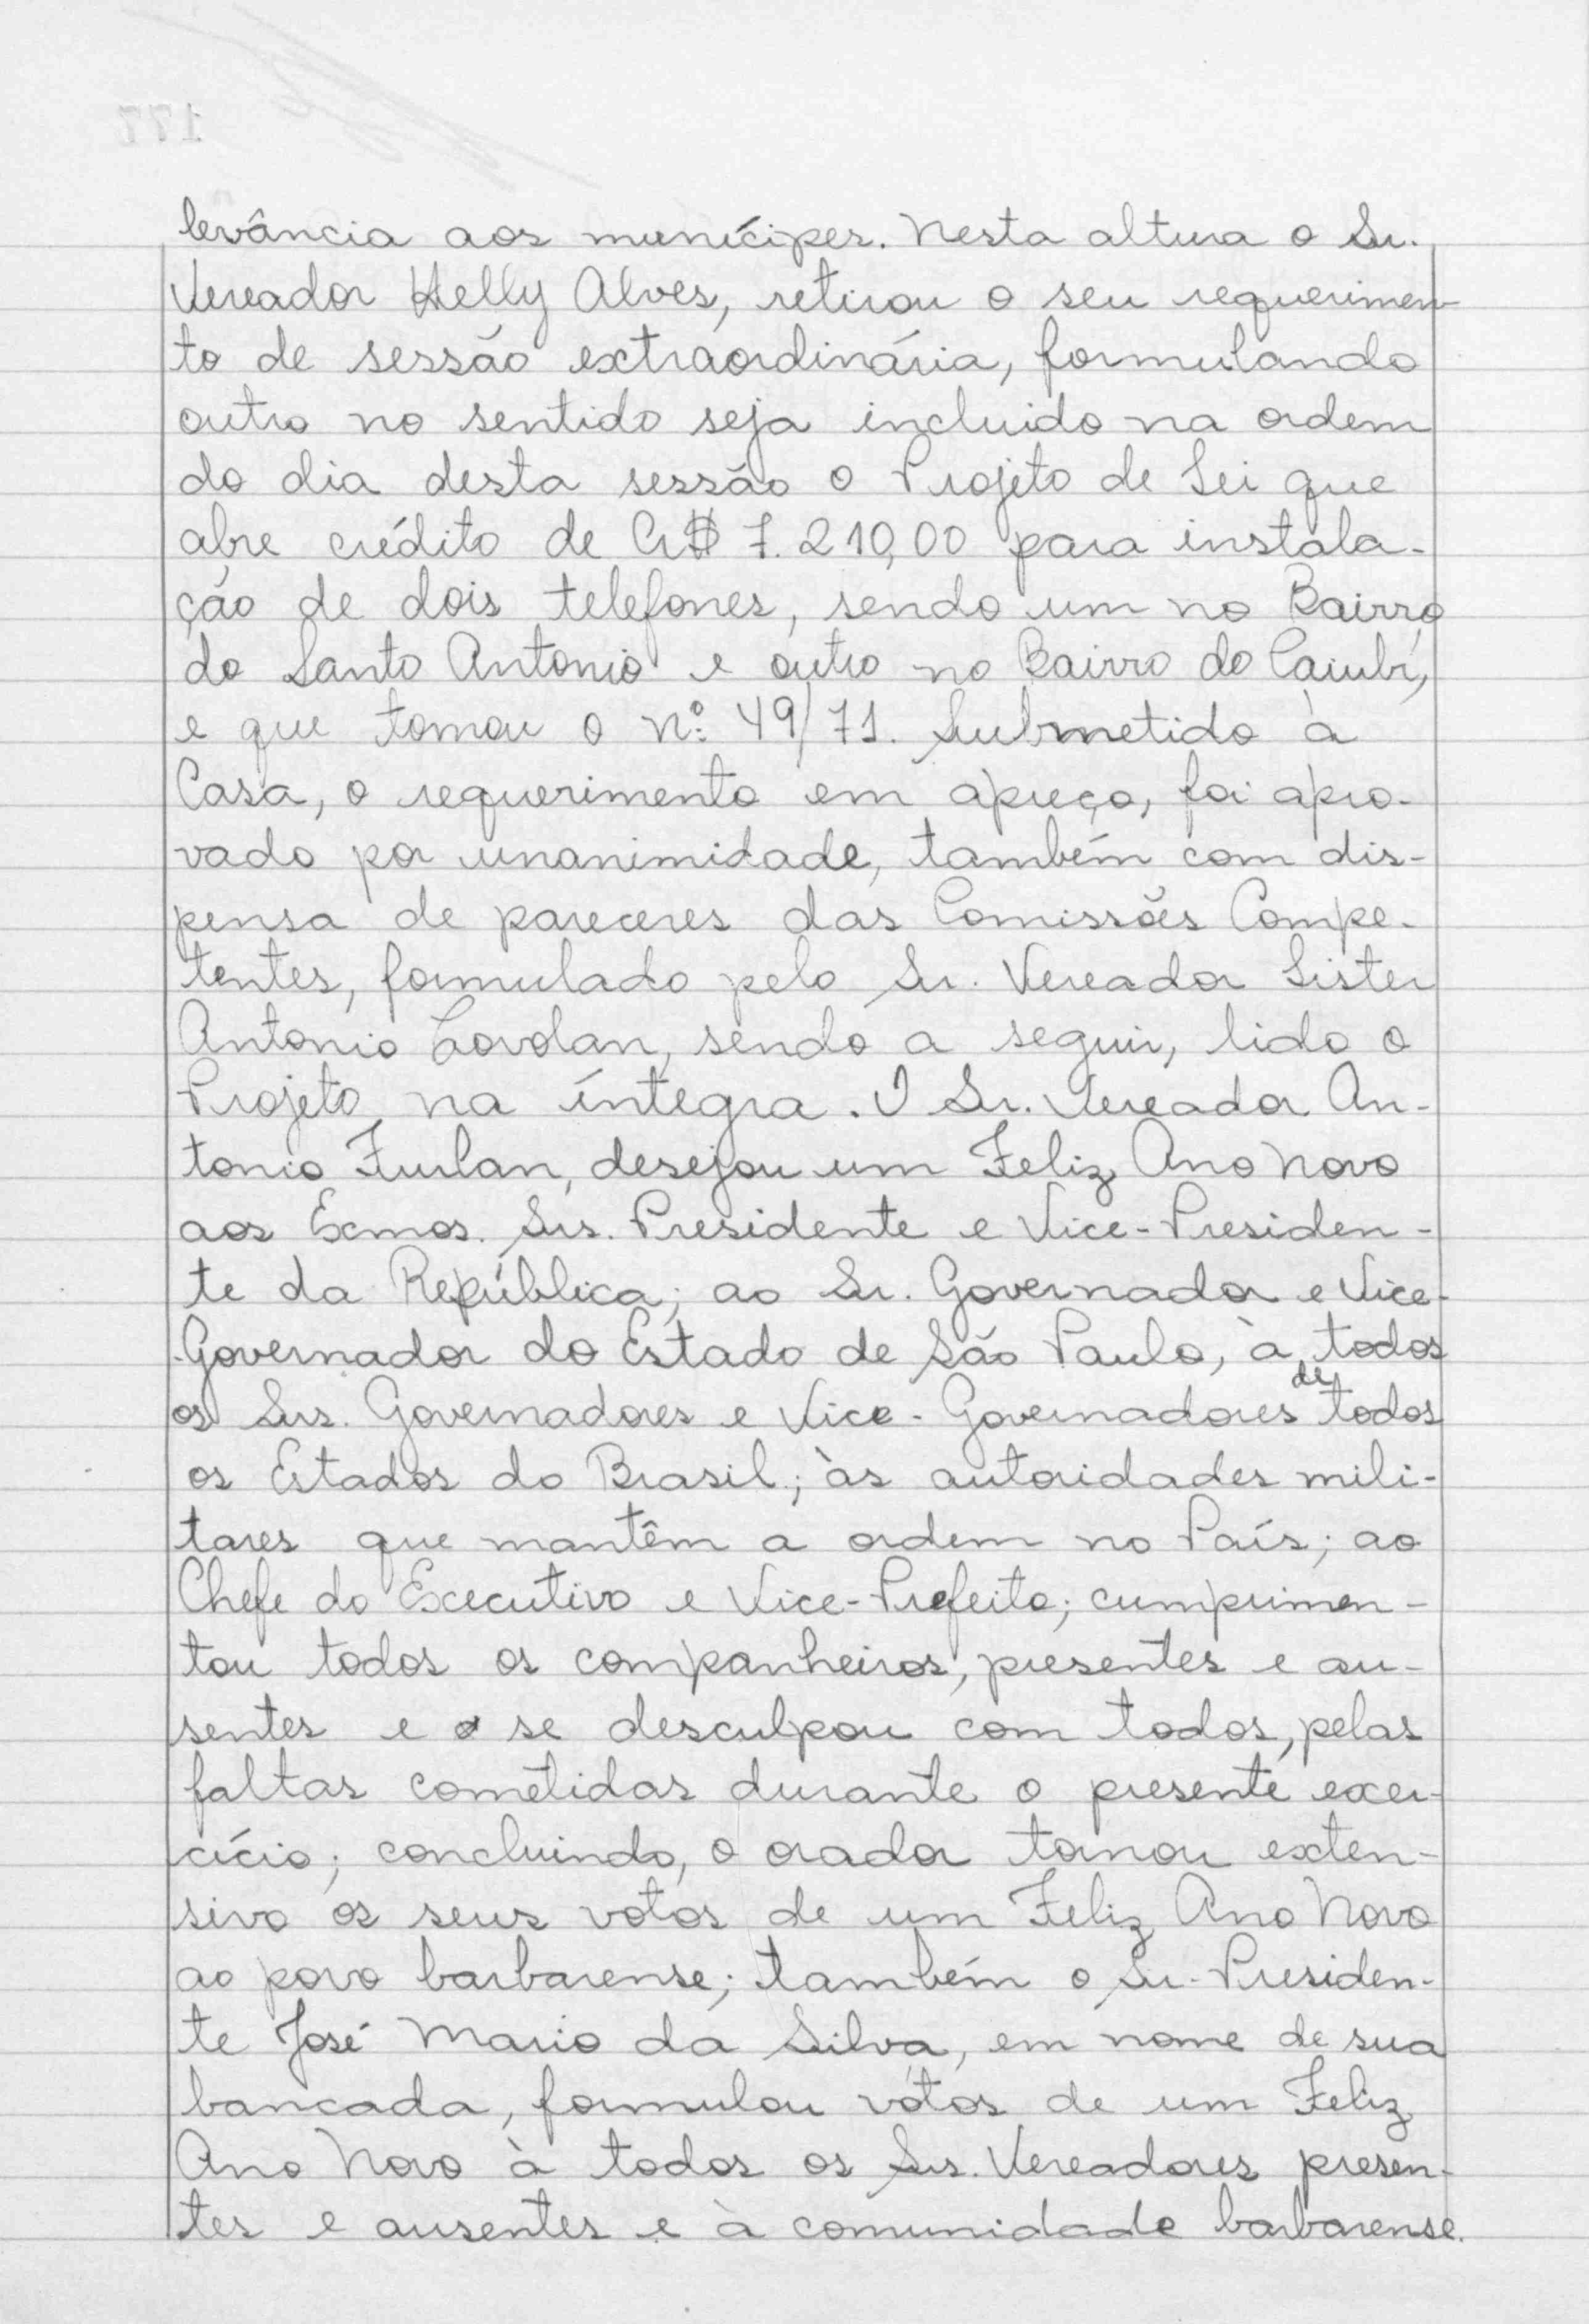 levância aos munícipes. Nesta altura o Sr.
Vereador Helly Alves, retirou o seu requerimen-
to de sessão extraordinária, formulando
outro no sentido seja incluido na ordem
do dia desta sessão o Projeto de Lei que
abre crédito de Cr$ 7.210,00 para instala-
ção de dois telefones, sendo um no Bairro
do Santo Antonio e outro no Bairro do Caiubí,
e que tomou o nº 49/71. Submetido à
Casa, o requerimento em apreço, foi apro-
vado por unanimidade, também com dis-
pensa de pareceres das Comissões Compe-
tentes, formulado pelo Sr. Vereador Lister
Antonio Covolan, sendo a seguir, lido o
Projeto na íntegra. O Sr. Vereador An-
tonio Furlan, desejou um Feliz Ano Novo
aos Exmos. Srs. Presidente e Vice-Presiden-
te da República; ao Sr. Governador e Vice-
-Governador do Estado de São Paulo, à todos
os Srs. Governadores e Vice-Governadores de todos
os Estados do Brasil; às autoridades mili-
tares que mantêm a ordem no País; ao
Chefe do Executivo e Vice-Prefeito; cumprimen-
tou todos os companheiros, presentes e au-
sentes e se desculpou com todos, pelas
faltas cometidas durante o presente exer-
cício; concluindo, o orador tornou exten-
sivo os seus votos de um Feliz Ano Novo
ao povo barbarense; também o Sr. Presiden-
te José Mario da Silva, em nome de sua
bancada, formulou vótos de um Feliz
Ano Novo à todos os Srs. Vereadores presen-
tes e ausentes e à comunidade barbarense.